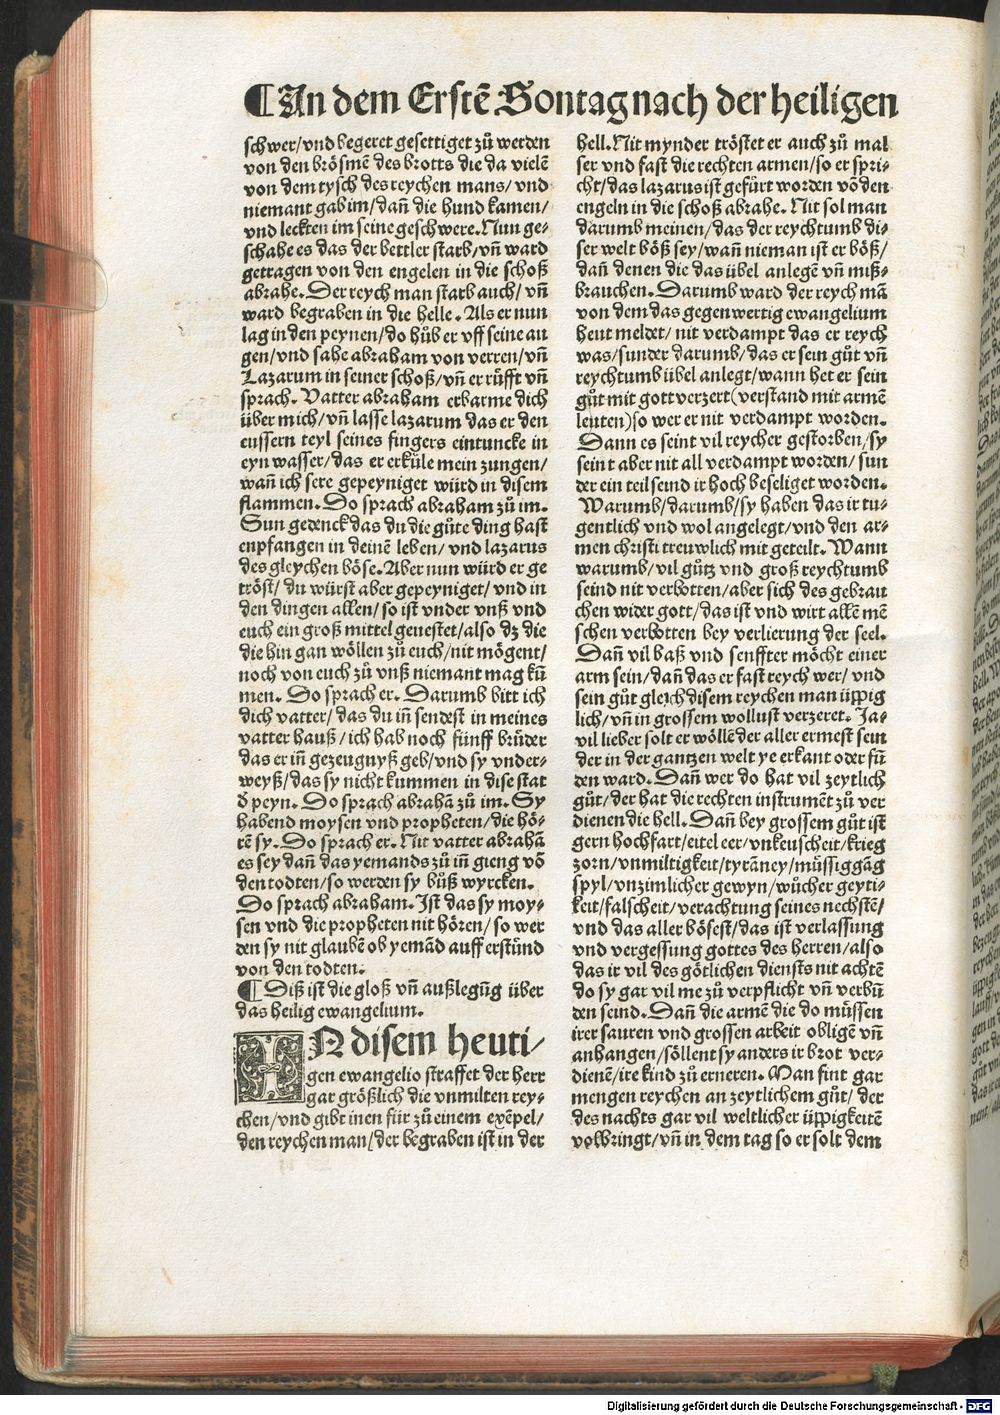 ¶An dem Erstē Sontag nach der heiligen
schwer/vnd begeret gesettiget zů werden
von den brösmē des brotts die da vielē
von dem tysch des reychen mans/ vnd
niemant gab im/dañ die hund kamen/
vnd leckten im seine geschwere. Nun ge-
schahe es das der bettler starb/vñ ward
getragen von den engelen in die schoß
abrahe. Der reych man starb auch/ vñ
ward begraben in die helle. Als er nun
lag in den peynen/do hůb er vff seine au
gen/vnd sahe abraham von verren/vñ
Lazarum in seiner schoß/vñ er růfft vñ
sprach. Vatter abraham erbarme dich
über mich/vñ lasse lazarum das er den
eussern teyl seines fingers eintuncke in
eyn wasser/das er erküle mein zungen/
wañ ich sere gepeyniget würd in disem
flammen. Do sprach abraham zů im.
Sun gedenck das du die gůte ding hast
enpfangen in deinē leben/ vnd lazarus
des gleychen böse. Aber nun würd er ge
tröst/ du würst aber gepeyniget/ vnd in
den dingen allen/so ist vnder vnß vnd
euch ein groß mittel geuestet/also dz die
die hin gan wöllen zů euch/nit mögent/
noch von euch zů vnß niemant mag kū
men. Do sprach er. Darumb bitt ich
dich vatter/das du iñ sendest in meines
vatter hauß/ich hab noch fünff brüder
das er iñ gezeugnyß geb/vnd sy vnder-
weyß/das sy nicht kummen in dise stat
ð peyn. Do sprach abrahā zů im. Sy
habend moysen vnd propheten/die hö-
rē sy. Do sprach er. Nit vatter abrahā
es sey dañ das yemands zů iñ gieng vō
den todten/so werden sy bůß wyrcken.
Do sprach abraham. Ist das sy moy-
sen vnd die propheten nit hören/so wer
den sy nit glaubē ob yemād auff erstünd
von den todten.
¶Diß ist die gloß vñ außlegūg über
das heilig ewangelium.
IN disem heuti/
gen ewangelio straffet der herr
gar größlich die vnmilten rey-
chen/vnd gibt inen für zů einem exēpel/
den reychen man/der begraben ist in der
hell. Nit mynder tröstet er auch zů mal
ser vnd fast die rechten armen/so er spri-
cht/das lazarus ist gefürt worden vō den
engeln in die schoß abrahe. Nit sol man
darumb meinen/das der reychtumb di-
ser welt böß sey/wañ nieman ist er böß/
dañ denen die das übel anlegē vñ miß-
brauchen. Darumb ward der reych mā
von dem das gegenwertig ewangelium
heut meldet/ nit verdampt das er reych
was/sunder darumb/das er sein gůt vñ
reychtumb übel anlegt/wann het er sein
gůt mit gott verzert(verstand mit armē
leuten)so wer er nit verdampt worden.
Dann es seint vil reycher gestorben/sy
seint aber nit all verdampt worden/sun
der ein teil seind ir hoch beseliget worden.
Warumb/darumb/sy haben das ir tu-
gentlich vnd wol angelegt/vnd den ar-
men christi treuwlich mit geteilt. Wann
warumb/vil gůtz vnd groß reychtumb
seind nit verbotten/aber sich des gebrau
chen wider gott/das ist vnd wirt allē mē
schen verbotten bey verlierung der seel.
Dañ vil baß vnd senffter möcht einer
arm sein/dañ das er fast reych wer/ vnd
sein gůt gleich disem reychen man üppig
lich/vñ in grossem wollust verzeret. Ja-
vil lieber solt er wöllē der aller ermest sein
der in der gantzen welt ye erkant oder fū
den ward. Dañ wer do hat vil zeytlich
gůt/der hat die rechten instrumēt zů ver
dienen die hell. Dañ bey grossem gůt ist
gern hochfart/eitel eer/vnkeuscheit/krieg
zorn/vnmiltigkeit/tyrāney/müssiggāg
spyl/vnzimlicher gewyn/wůcher geyti-
keit/falscheit/verachtung seines nechstē/
vnd das aller bösest/das ist verlassung
vnd vergessung gottes des herren/also
das ir vil des götlichen diensts nit achtē
do sy gar vil me zů verpflicht vñ verbū
den seind. Dañ die armē die do müssen
irer sauren vnd grossen arbeit obligē vñ
anhangen/söllent sy anders ir brot ver-
dienē/ire kind zů erneren. Man fint gar
mengen reychen an zeytlichem gůt/ der
des nachts gar vil weltlicher üppigkeitē
volbringt/vñ in dem tag so er solt dem
Digitalisierung gefördert durch die Deutsche Forschungsgemeinschaft - DFG